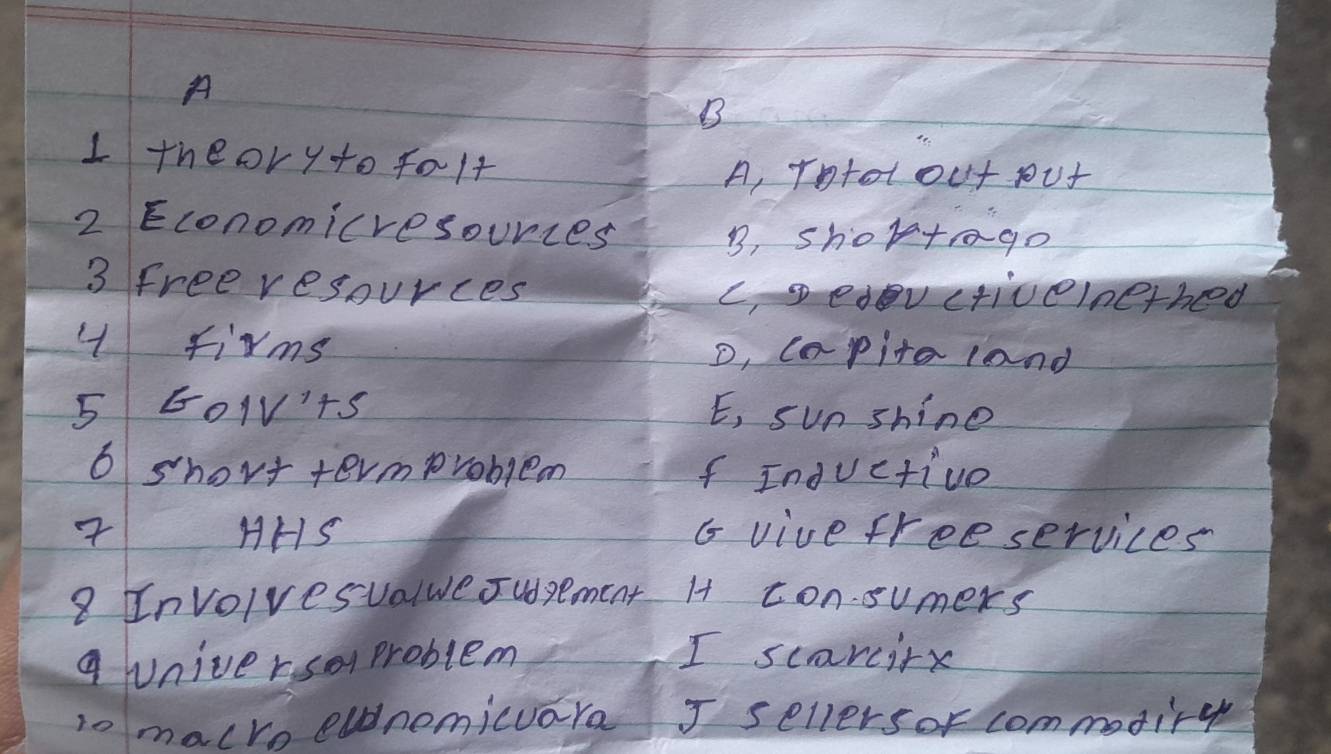 A
B
1 theory to falt
A, Total out put
2 Economic resources
B, shortage
3 free resources
C, Deductive method
4 firms
D, capita land
5 Golv'ts
E, sun shine
6 short term problem
f Inductive
7 HHS
G vive free services
8 Involves value Judgement
H con.sumers
9 universal problem
I scarcitx
10 macro economic vara
J sellers of commodity